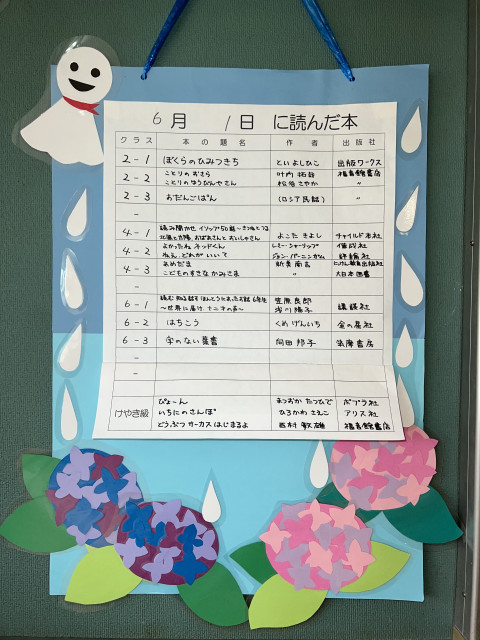 6月 1日 に読んだ本
クラス 本の題名 作者 出版社
2-1 ぼくらのひみつきち といよしひこ 出版ワークス
2-2 ことりのおそら 叶内拓哉 福音館書店
ことりのゆうびんやさん 松谷さやか 〃
2-3 おだんごぱん (ロシア民話) 〃
-
4-1 読み聞かせ イソップ50話〜きつねとつる
北風と太陽、おばあさんとおいしゃさん よこた きよし チャイルド本社
4-2 よかったね ネッドくん レミー・シャーリップ 偕成社
ねえ、どれが いい? ジョン・バーニンガム 評論社
4-3 あめだま 新美南吉 にっけん教育出版社
こどものすきなかみさま 〃 大日本図書
-
6-1 読む知る話す ほんとうにあったお話 6年生 笠原良郎
〜世界に届け、十二才の声〜 浅川陽子 講談社
6-2 はちこう くめげんいち 金の星社
6-3 字のない葉書 向田邦子 筑摩書房
-
-
けやき級 ぴょーん まつおか たつひで ポプラ社
いちにのさんぽ ひろかわ さえこ アリス社
どうぶつサーカスはじまるよ 西村敏雄 福音館書店